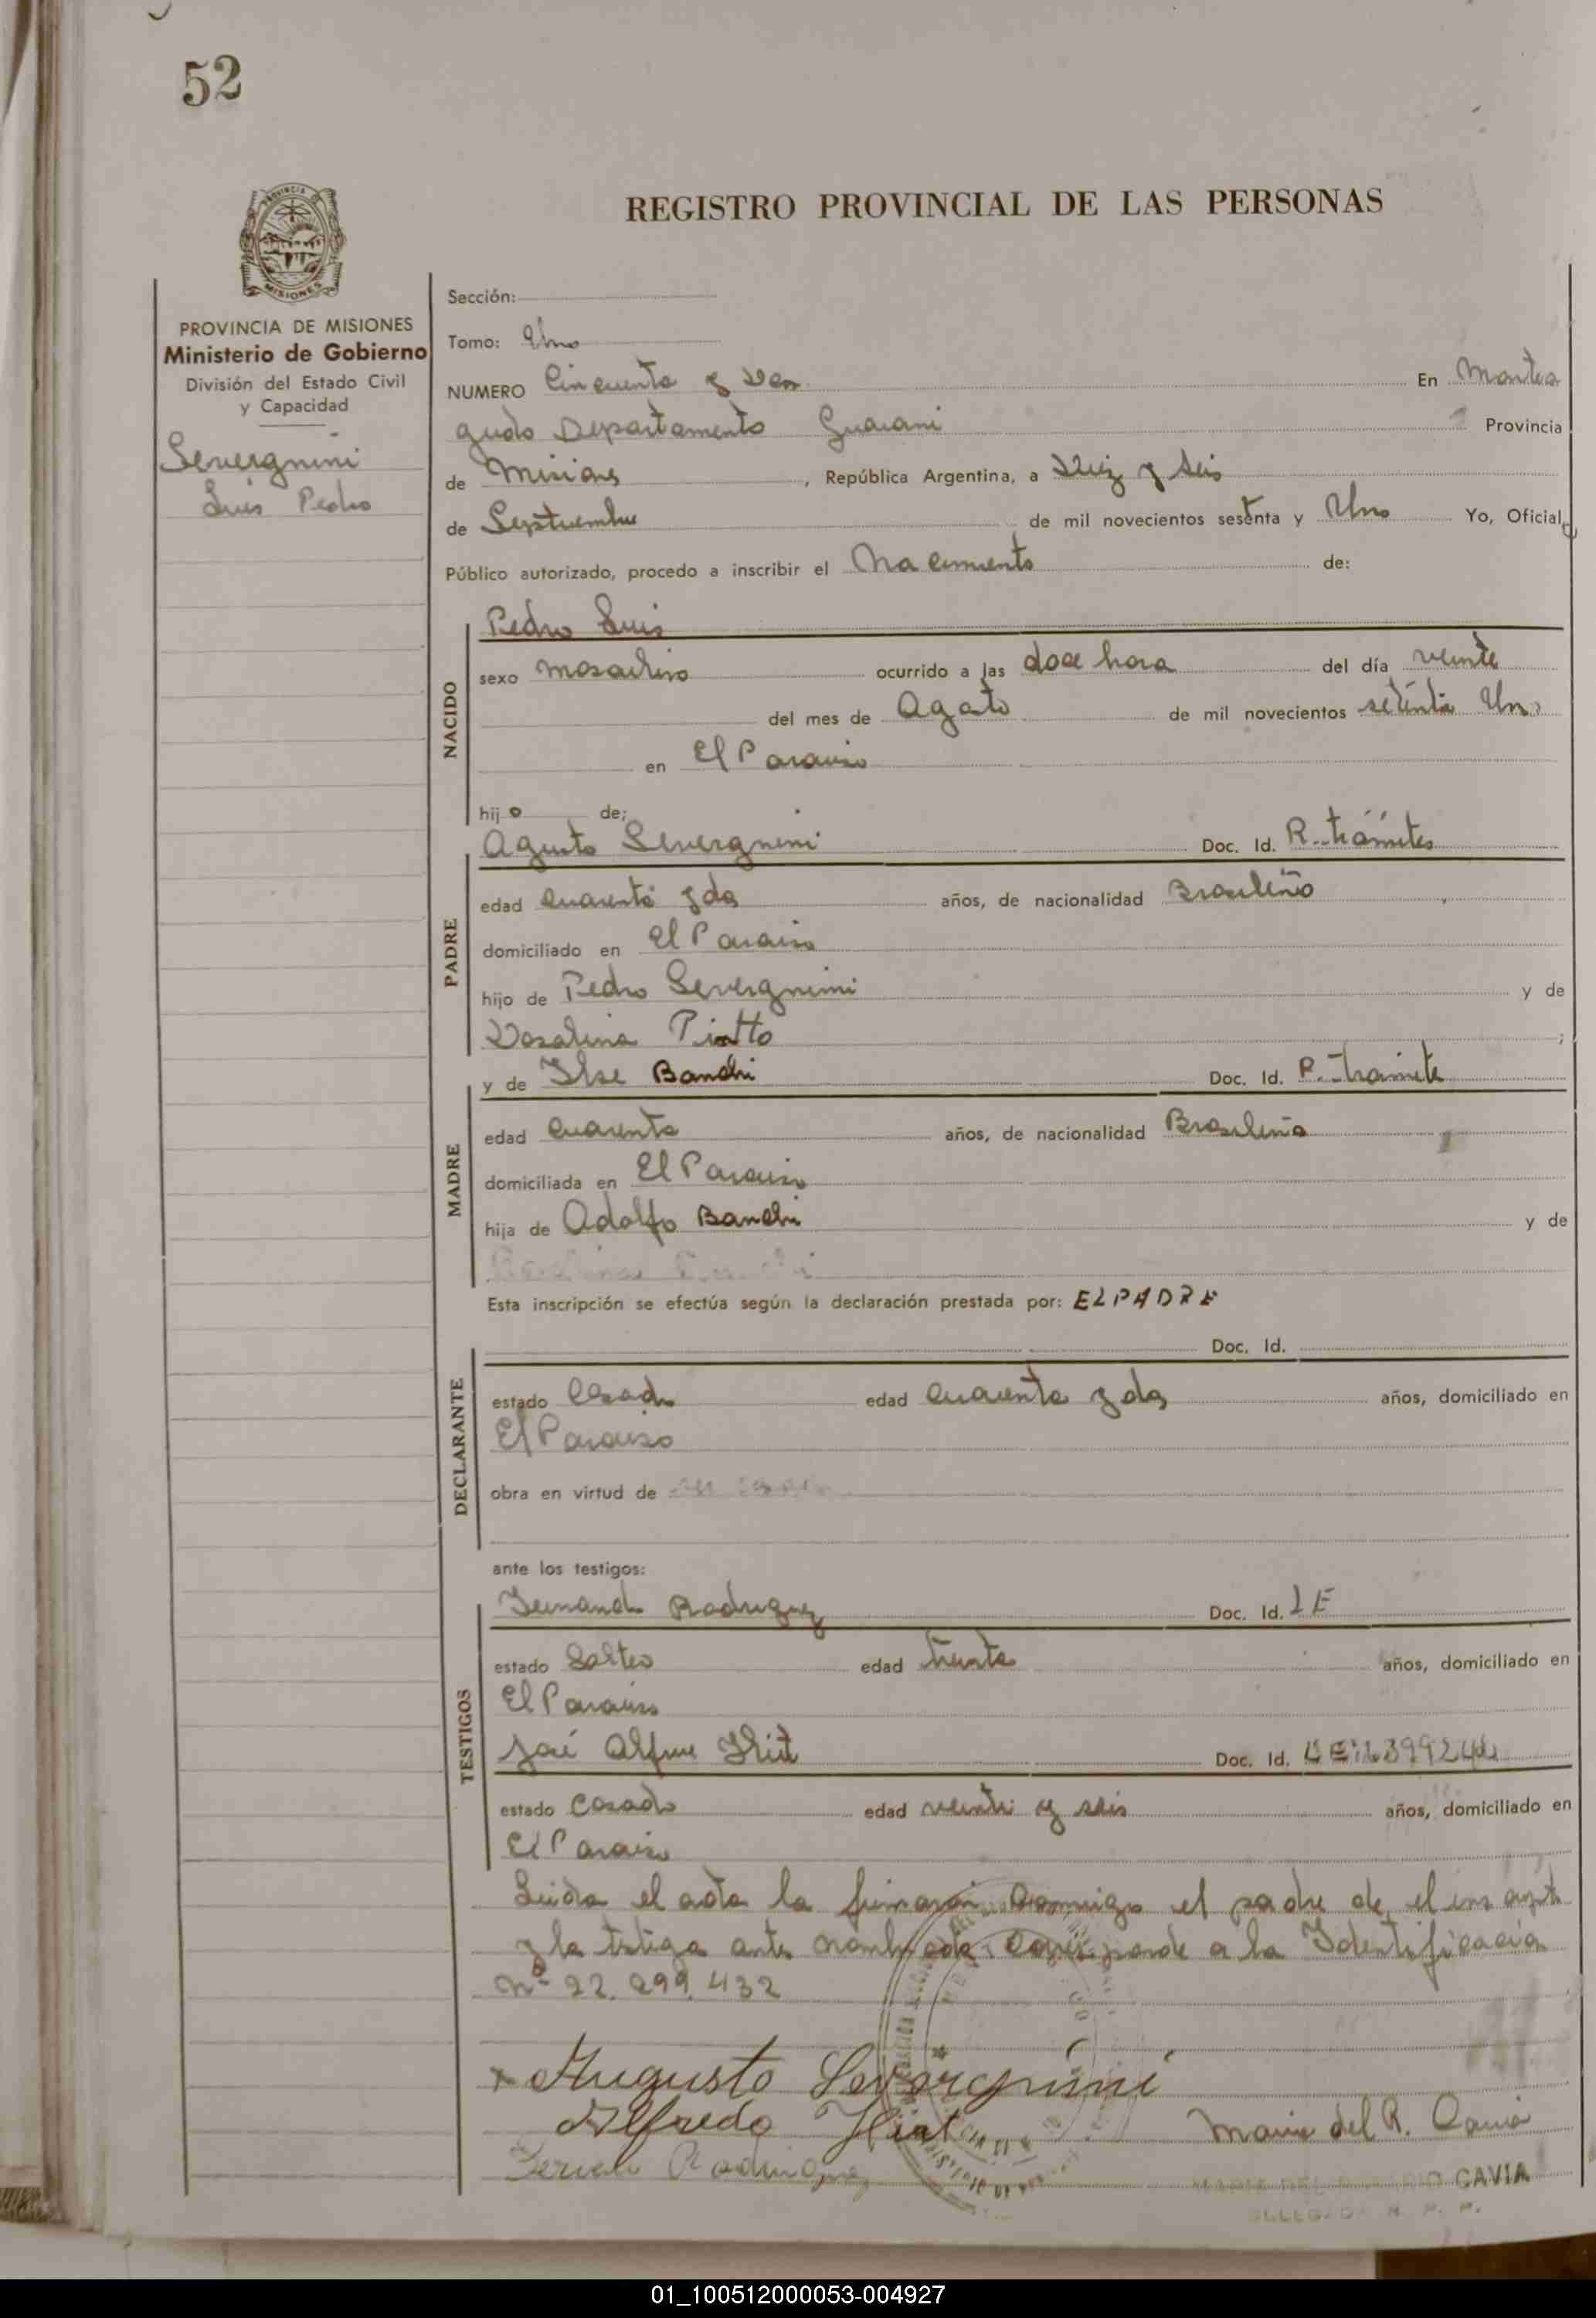 52
PROVINCIA
MISIONES
REGISTRO PROVINCIAL DE LAS PERSONAS
PROVINCIA DE MISIONES
Ministerio de Gobierno
División del Estado Civil
y Capacidad
Severgnini
Luis Pedro
Sección:
Tomo: Uno
NUMERO Cincuenta y Dos En Montea
gudo Departamento Guarani Provincia
de Misiones, República Argentina, a Diez y Seis
de Septiembre de mil novecientos sesenta y Uno Yo, Oficial
Público autorizado, procedo a inscribir el Nacimiento de:
NACIDO
Pedro Luis
sexo masculino ocurrido a las doce hora del día veinte
del mes de Agosto de mil novecientos setenta Uno
en El Paraiso
hijo de:
PADRE
Agusto Severgnini Doc. Id. R. trámites
edad cuarenta y dos años, de nacionalidad Brasileño
domiciliado en El Paraiso
hijo de Pedro Severgnini y de
Rosalina Piatto;
MADRE
y de Ilse Bandri Doc. Id. R. tramite
edad cuarenta años, de nacionalidad Brasileña
domiciliada en El Paraiso
hija de Adolfo Bandri y de
Esta inscripción se efectúa según la declaración prestada por: EL PADRE
Doc. Id.
DECLARANTE
estado Casado edad cuarenta y dos años, domiciliado en
El Paraiso
obra en virtud de
ante los testigos:
TESTIGOS
Rodriguez Doc. Id. L E
estado Soltero edad treinta años, domiciliado en
El Paraiso
José Doc. Id.
estado Casado edad veinti y seis años, domiciliado en
El Paraiso
Leida el acta la firmaran conmigo el padre de el inscripto
y los testigos antes nombrados. Corresponde a la Identificación
Nº 22.299.432
x Augusto Severgnini
Alfredo
Rodriguez
Maria del R. Cavia
CAVIA
01_100512000053-004927